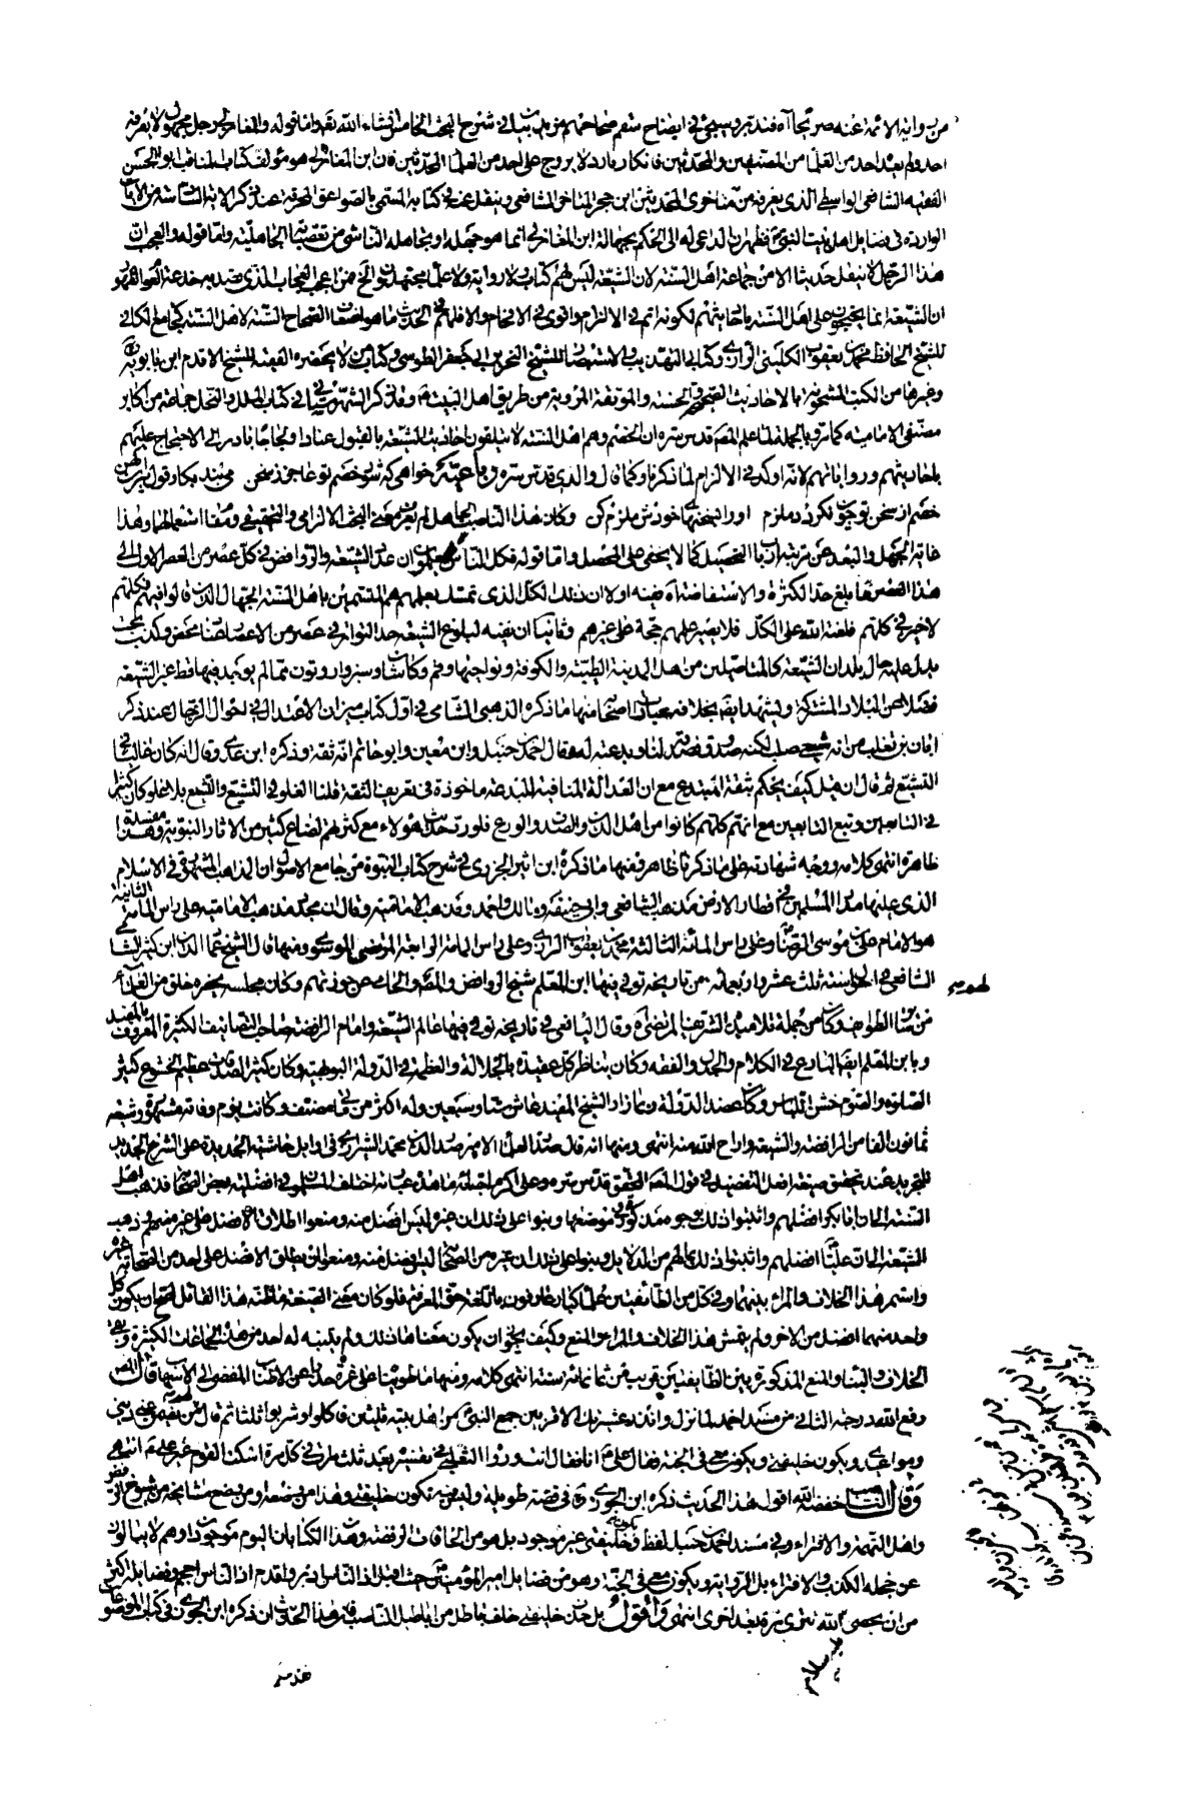 من رواية الائمة عنه صريحا آه فتدبر وسيجيئ في ايضاح سقم صحاحهم من بيان في شرح المبحث الخامس انشاء الله تعالى واما قوله والمغازلي رجل مجهول لا يعرفه
احد ولم يعده احد من العلماء من المصنفين والمحدثين فانكار بارد لا يروج على احد من العلماء المحدثين فان ابن المغازلي هو مؤلف كتاب المناقب ابو الحسن
الفقيه الشافعي الواسطي الذي يعرفه من متأخري المحدثين ابن حجر المتأخر الشافعي وينقل عنه في كتابه المسمى بالصواعق المحرقة عند ذكر الآية السادسة من الآيات
الواردة في فضايل اهل بيت النبي فظهر ان الداعي له الى الحكم بجهالة ابن المغازلي انما هو جهله او تجاهله الناشي من تعصبه الجاهلية واما قوله والعجب ان
هذا الرجل لا ينقل حديثا الا من جماعة اهل السنة لان الشيعة ليس لهم كتاب ولا رواية ولا علماء مجتهدون الخ فمن اعجب العجاب الذي قصد به خداعة العوام
ان الشيعة انما يحتجون على اهل السنة باحاديثهم لكونه اتم في الالزام واقوى في الافحام والا فلهم في الحديث ما هو اضعاف الصحاح الستة لاهل السنة كجامع الكافي
للشيخ الحافظ محمد بن يعقوب الكليني الرازي وكتابي التهذيب والاستبصار للشيخ النحرير ابي جعفر الطوسي وكتاب من لا يحضره الفقيه للشيخ الاقدم ابن بابويه
وغيرها من الكتب المشحونة بالاحاديث الصحيحة والحسنة والموثقة المروية من طريق اهل البيت وقد ذكر الشهرستاني في كتاب الملل والنحل جماعة من اكابر
مصنفي الامامية كما مر وبالجملة لما علم المصنف قدس سره ان الخصم وهم اهل السنة لا يتلقون احاديث الشيعة بالقبول عنادا ولجاجا بادر الى الاحتجاج عليهم
باحاديثهم ورواياتهم لانه اوكد في الالزام لما ذكرنا وكما قال والدي قدس سره رباعية خواهى كه شود خصم تو عاجز ز سخن
خصم از سخن تو چون نگردد ملزم او را بسخنهاى خودش ملزم كن وكان هذا الناصب الجاهل لم يعرف معنى البحث الالزامي والتحقيقي ومقام استعمالهما وهذا
غاية الجهل والبعد عن مرتبة ارباب التحصيل كما لا يخفى على المحصل واما قوله فكل الناس يعلمون ان عدد الشيعة والروافض في كل عصر من العصر الاول الى
هذا العصر ما بلغ حد الكثرة والاستفاضة آه ففيه اولا ان ذلك الكل الذي تمسك بعلمهم هم المتسمين باهل السنة الجهال الذين
لا خير في كلهم فلعنة الله على الكل فلا يصير علمهم حجة على غيرهم وثانيا ان نفيه لبلوغ الشيعة حد التواتر في عصر من الاعصار عناد محض وكذب بحت
يدل عليه حال بلدان الشيعة كالمتاصلين من اهل المدينة الطيبة والكوفة ونواحيها وقم وكاشان وسبزوار وتون مما لم يوجد فيها قط غير الشيعة
فضلا عن البلاد المشتركة ويشهد ايضا بخلافه عبارات اصحابه منها ما ذكره الذهبي الشامي في اول كتاب ميزان الاعتدال في احوال الرجال عند ذكر
ابان بن تغلب من انه شيعي صلب لكنه صدوق فصدقه لنا وبدعته له وقال احمد بن حنبل وابن معين وابو حاتم انه ثقة وذكره ابن عدي وقال انه كان غاليا في
التشيع ثم قال ان قيل كيف يحكم بثقة المبتدع مع ان العدالة المنافية للبدعة ماخوذة في تعريف الثقة قلنا الغلو في التشيع والتشيع بلا غلو كان كثيرا
في التابعين وتبع التابعين مع انهم كلهم كانوا من اهل الدين والصدق والورع فلو رد حديث هؤلاء مع كثرتهم لضاع كثير من الآثار النبوية وهذا مفسدة
ظاهرة انتهى كلامه ووجه شهادته على ما ذكرنا ظاهر ومنها ما ذكره ابن اثير الجزري في شرح كتاب النبوة من جامع الاصول ان المذاهب المشهورة في الاسلام
الذي عليها مدار المسلمين في اقطار الارض مذهب الشافعي وابي حنيفة ومالك واحمد ومذهب الامامية وقال ان مجدد مذهب الامامية على راس المائة الثانية
هو الامام علي بن موسى الرضا وعلى راس المائة الثالثة محمد بن يعقوب الرازي وعلى راس المائة الرابعة المرتضى الموسوي ومنها قال الشيخ عماد الدين ابن كثير الشامي
الشافعي في احوال سنة ثلث عشرة واربعمائة من تاريخه توفي فيها ابن المعلم شيخ الروافض والمصنف لهم والحامي عن حوزتهم وكان مجلسه يحضره خلق من العلماء
من سائر الطوايف وكان من جملة تلاميذه الشريف المرتضى آه وقال اليافعي في تاريخه توفي فيها عالم الشيعة وامام الرافضة صاحب التصانيف الكثيرة المعروف بالمفيد
وبابن المعلم ايضا البارع في الكلام والجدل والفقه وكان يناظر كل عقيدة بالجلالة والعظمة في الدولة البويهية وكان كثير الصدقات عظيم الخشوع كثير
الصلوة والصوم خشن اللباس وكان عضد الدولة ربما زار الشيخ المفيد عاش ستا وسبعين وله اكثر من مائتي مصنف وكانت يوم وفاته مشهورة وشيعه
ثمانون الفا من الرافضة والشيعة واراح الله منه انتهى ومنها انه قال صدر العلماء الامير صدر الدين محمد الشيرازي في اوايل حاشيته الجديدة على الشرح الجديد
للتجريد عند تحقيق صيغة افعل التفضيل في قول المصنف المحقق قدس سره وعلى اكرم احبائه ما هذه عبارته اختلف المسلمون في افضلية بعض الصحابة فذهب اهل
السنة الى ان ابا بكر افضلهم واثبتوا ذلك بوجوه مذكورة في موضعها وبنوا على ذلك ان غيره ليس افضل منه ومنعوا اطلاق الافضل على غيره منهم وذهب
الشيعة الى ان عليا افضلهم واثبتوا ذلك بما لهم من الدلايل وبنوا على ذلك ان غيره من الصحابة ليس افضل منه ومنعوا ان يطلق الافضل على احد من الصحابة غيره
واستمر هذا الخلاف والمراء بينهما وفي كل من الطائفتين علماء كبار عارفون باللغة حق المعرفة فلو كان معنى الصيغة ما ظنه هذا القائل لصح ان يكون كل
واحد منهما افضل من الاخر ولم يتمش هذا الخلاف والمراء والمنع وكيف يجوز ان يكون معناها ذلك ولم يتنبه له احد من هذه الجماعات الكثيرة وبقي
الخلاف والبناء والمنع المذكورة بين الطائفتين قريب من ثمانمائة سنة انتهى كلامه ومنها ما طويناه على غره حذرا عن الاطناب المفضي الى الاسهاب قال المص
رفع الله درجته الثاني من مسند احمد لما نزل وانذر عشيرتك الاقربين جمع النبي من اهل بيته ثلثين فاكلوا وشربوا ثلثا ثم قال لهم من يضمن عني ديني
ومواعيدي ويكون خليفتي ويكون معي في الجنة فقال علي انا فقال انت ورواه الثعلبي في تفسيره بعد ثلث مرات في كل مرة اسكت القوم غير علي انتهى
وقال الناصب خفضه الله اقول هذا الحديث ذكره ابن الجوزي في قصة طويلة وليس فيه تكون خليفتي وهذا من وضعه او من وضع مشايخه من شيوخ الرفض
واهل التهمة والافتراء وفي مسند احمد بن حنبل لفظ ويكون خليفتي غير موجود بل هو من الحاقات الرفضة وهذا الكتابان اليوم موجودان وهم لا يبالون
عن خجلة الكذب والافتراء بل الرواية ويكون معي في الجنة وهو من فضايل امير المؤمنين
من ان يحصى انتهى واقول بل حذف خليفتي